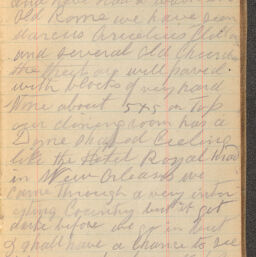 and have had a
Old Rome we have seen
Marcus Aurelius
and several Old Churches
the streets are well paved
with blocks of very hard
stone about 5x5 on top
our diningroom has a
Dome shaped Cieling
like the Hotel Royal
in New Orleans we
came through a very inter
esting Country but it got
dark before we got in but
I shall have a chance to see